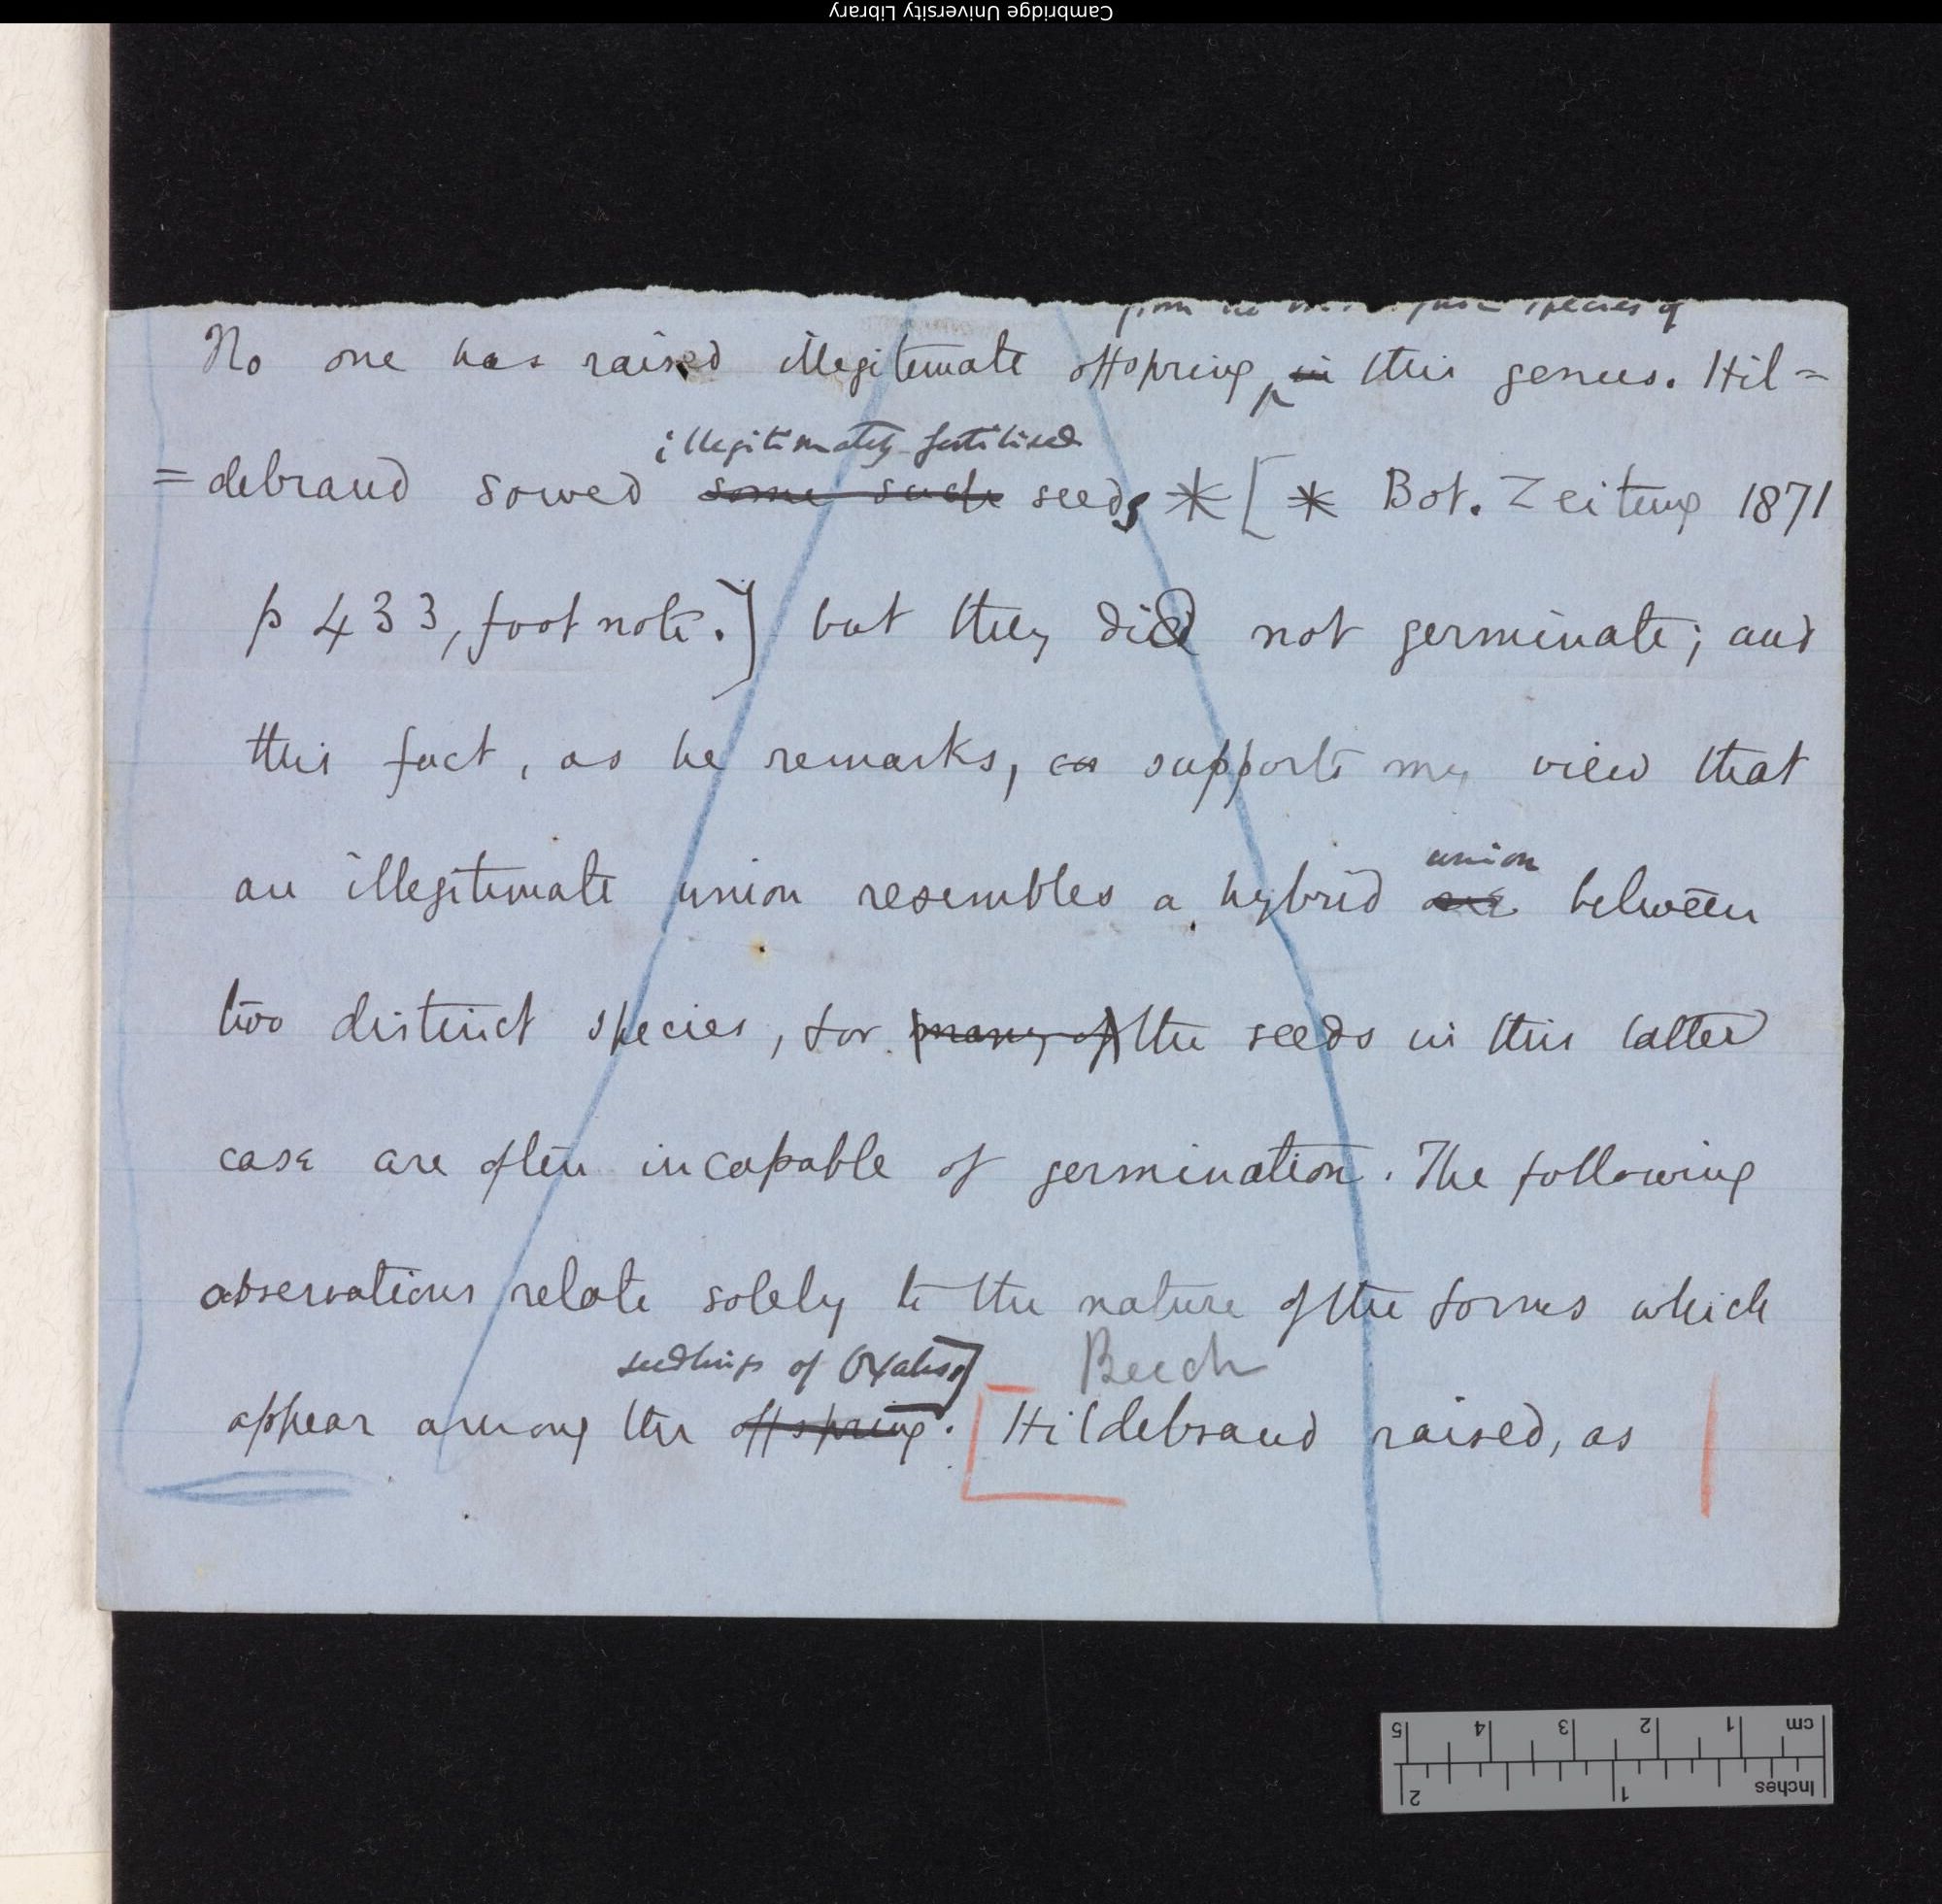 Cambridge University Library
from the species of
No one has raised illegitimate offspring in this genus. Hil=
illegitimately fertilised
=debraud sowed some such seeds * [ * Bot. Zeitung 1871
p 433, foot note.] but they did not germinate; and
this fact, as he remarks, supports my view that
union
an illegitimate union resembles a hybrid between
two distinct species, for many of the seeds in this latter
case are often incapable of germination. The following
observations relate solely to the nature of the forms which
seedlings of Oxalis] Beech
appear among the offspring. [Hildebrand raised, as
cm 1 2 3 4 5
Inches 1 2